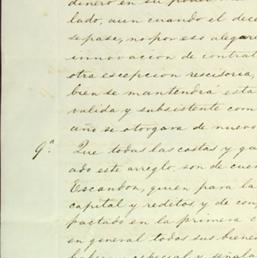 dinero en su poder
lado, aun cuando el dece
se pase, no por eso alegar
innovacion de contrat
otra escepcion rescisoria,
bien se mantendrá esta
valida y subsistente com
año se otorgara de nuevo
9ª. Que todas las costas y ga
ado este arreglo, son de cuen
Escandon, quien para la
capital y reditos y de con
pactado en la primera c
en general todos sus biene
especial y señala